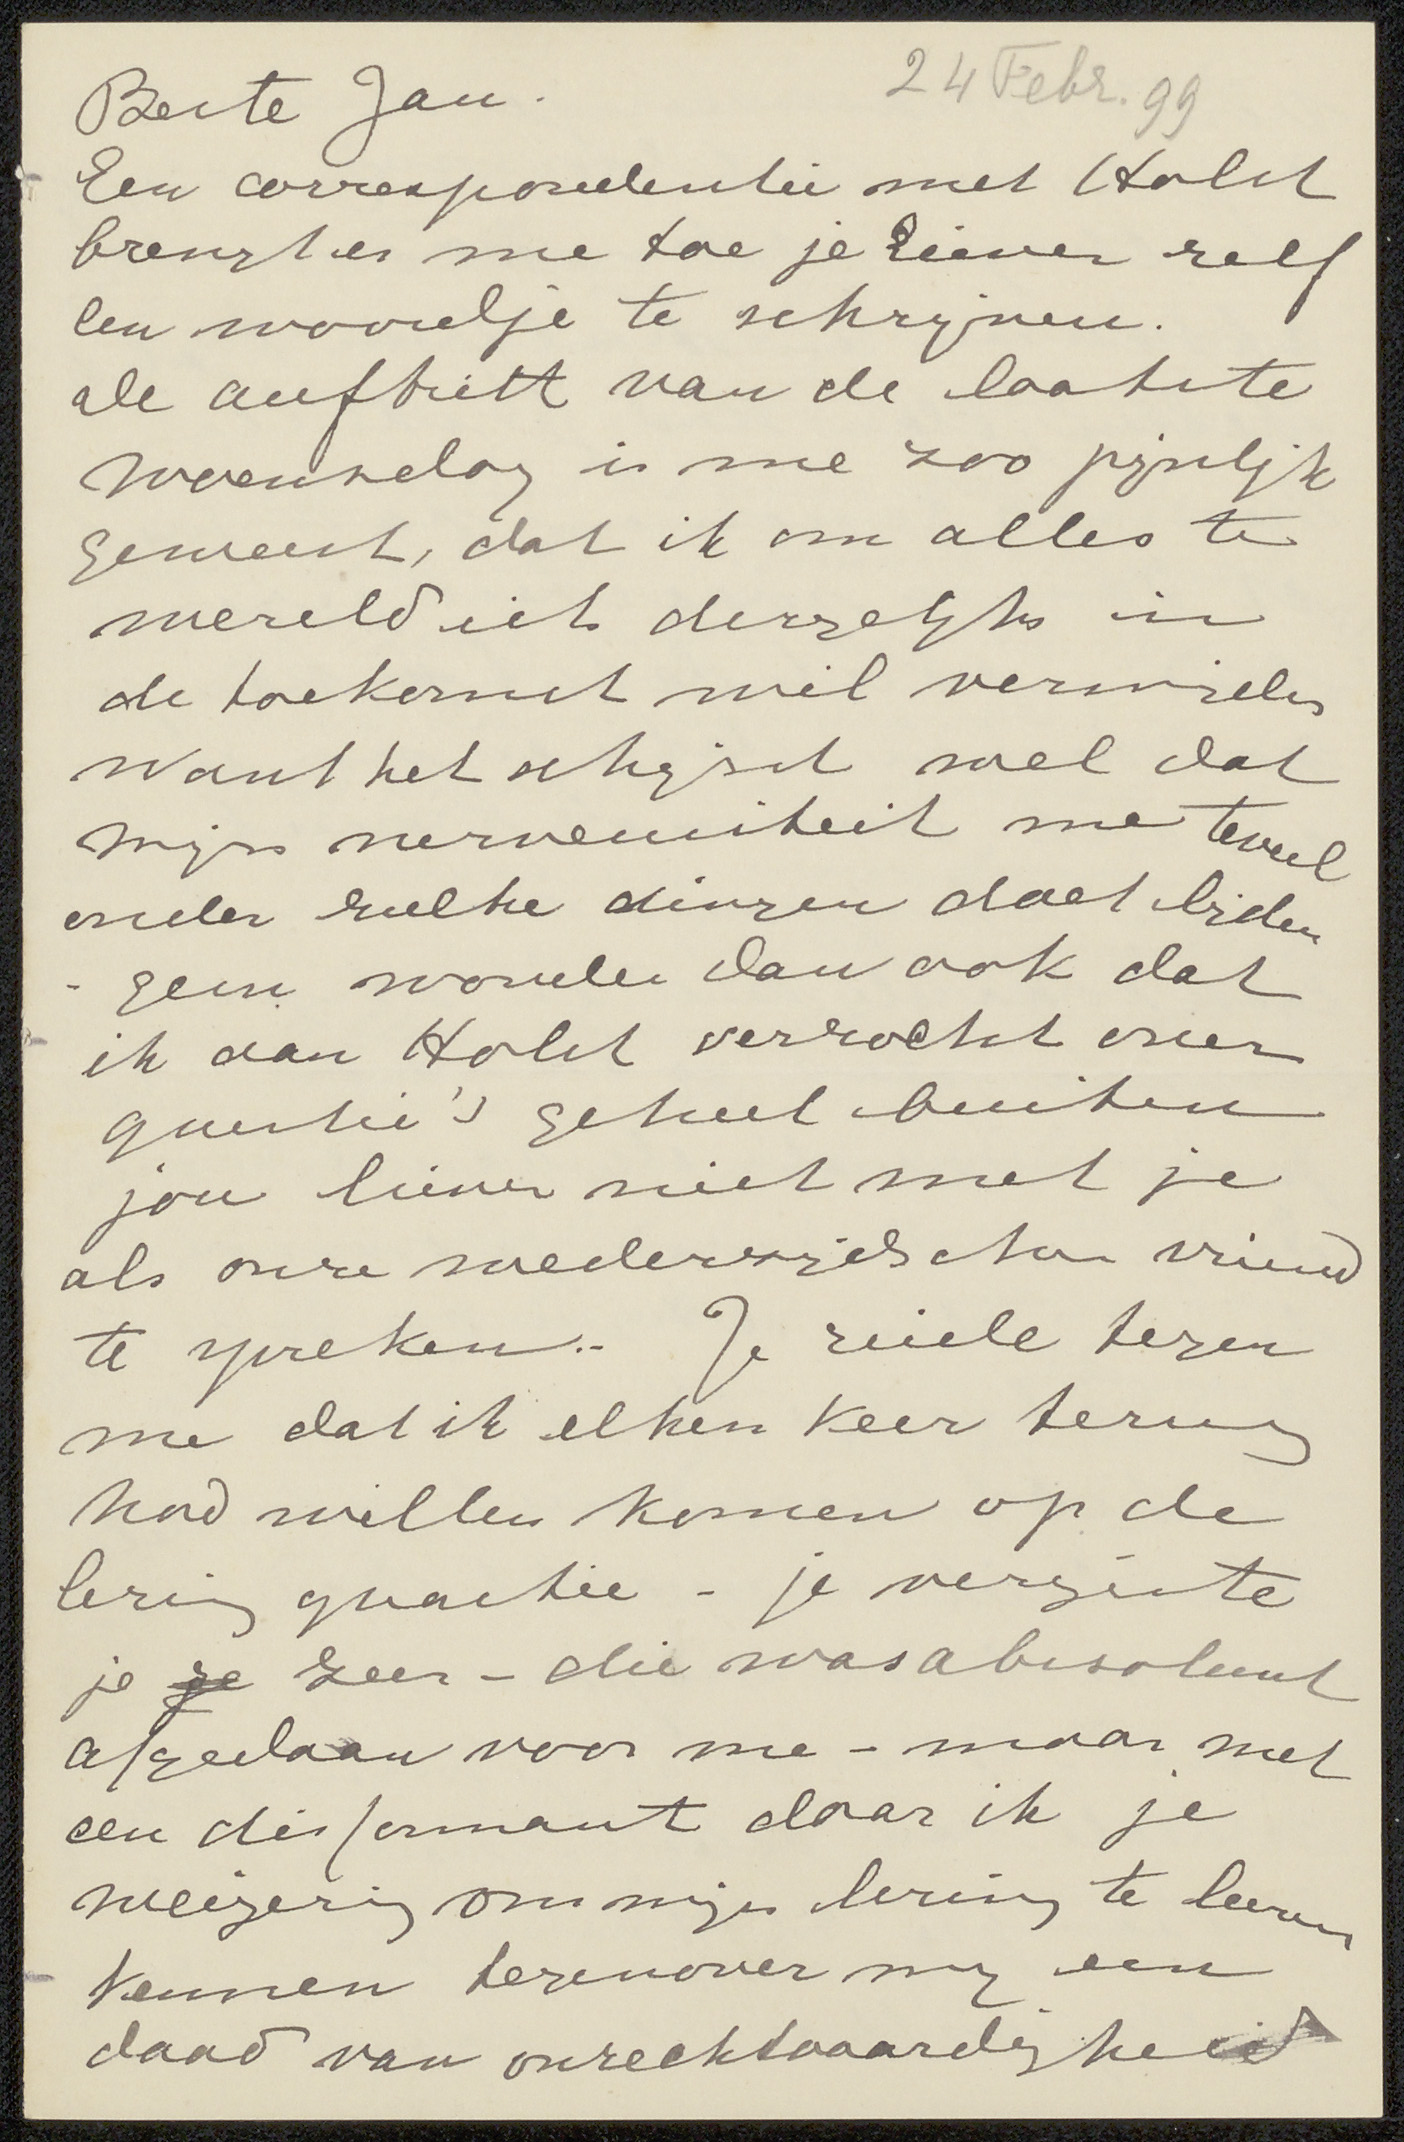 24 Febr. 99
Beste Jan.
Een correspondentie met Holst
brengt er me toe je liever zelf
een woordje te schrijven.
de auftritt van de laatste
Woensdag is me zoo pijnlijk
geweest, dat ik om alles te
wereld iets dergelijks in
de toekomst wil vermijden
want het schijnt wel dat
mijn nerveusiteit me teveel
onder zulke dingen doet lijden
- geen wonder dan ook dat
ik aan Holst verzocht over
questie's geheel buiten
jou liever niet met je
als onze wederzijdschen vriend
te spreken.- Je zeide tegen
me dat ik elken keer terug
had willen komen op de
lering quaestie - je vergiste
je je zeer - die was absoluut
afgedaan voor me - maar met
een dis/ormant daar ik je
weigering om mijn lering te leeren
kennen tegenover mij een
daad van onrechtvaardigheid